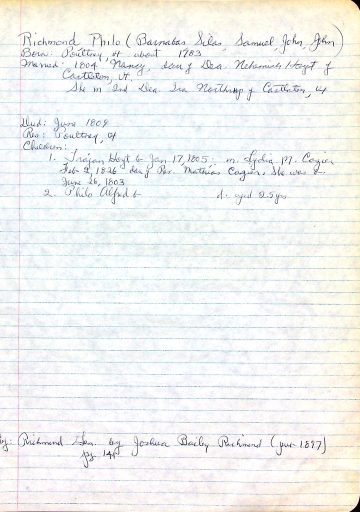 Richmond Philo (Barnabas Silas, Samuel, John, John)
Born: Poultney, Vt about 1783
Married: 1804 Nancy, dau of Dea. Nehemiah Hoyt of
Castleton, Vt.
She m 2nd Dea. Ira Northrop of Castleton, Vt
Died: June 1809
Res: Poultney, Vt
Children:
1. Trojan Hoyt b Jan 17, 1805; m. Lydia M. Cazier
Feb 2, 1826 dau of Rev. Mathias Cazier. She was b.
June 26, 1803
2. Philo Alfred b d. aged 22 yrs
Richmond Gen. by Joshua Baily Richmond (year 1897)
pg. 141